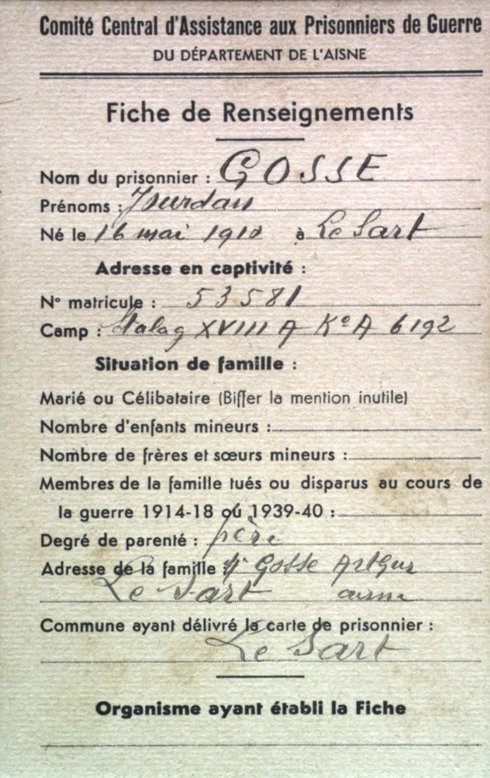 Comité Central d'Assistance aux Prisonniers de Guerre
DU DÉPARTEMENT DE L'AISNE
Fiche de Renseignements
Nom du prisonnier : GOSSE
Prénoms : Jourdan
Né le 16 mai 1910 à Le Sart
Adresse en captivité :
N° matricule : 53581
Camp : Stalag XVIII A K° A 6192
Situation de famille :
Marié ou Célibataire (Biffer la mention inutile)
Nombre d'enfants mineurs :
Nombre de frères et sœurs mineurs :
Membres de la famille tués ou disparus au cours de
la guerre 1914-18 où 1939-40 :
Degré de parenté : père
Adresse de la famille Gosse Arthur
Le Sart aisne
Commune ayant délivré la carte de prisonnier :
Le Sart
Organisme ayant établi la Fiche